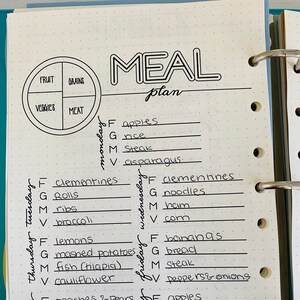 MEAL
plan
FRUIT
GRAINS
VEGGIES
MEAT
monday
F apples
G rice
M Steak
V asparagus
tuesday
F clementines
G Rolls
M ribs
V broccoli
wednesday
F clementines
G noodles
M ham
V corn
thursday
F lemons
G mashed potatoes
M fish (tilapia)
V cauliflower
friday
F bananas
G bread
M steak
V peppers & onions
F peaches & pears
F apples